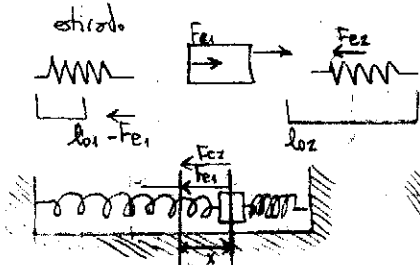 estirado
Fe1
Fe2
l01 -Fe1
l02
Fe2
Fe1
x